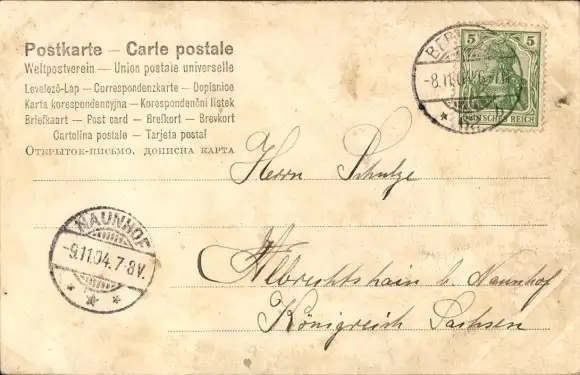 Postkarte – Carte postale
Weltpostverein – Union postale universelle
Levelező-Lap – Correspondenzkarte – Dopisnice
Karta korespondencyjna – Korespondenční lístek
Briefkaart – Post card – Brefkort – Brevkort
Cartolina postale – Tarjeta postal
Открытое-письмо. дописна карта
5 5
DEUTSCHES REICH
BER
-8.11.04
Herrn Schulze
NAUNHOF
-9.11.04.7-8V.
Albrechtshain b. Naunhof
Königreich Sachsen